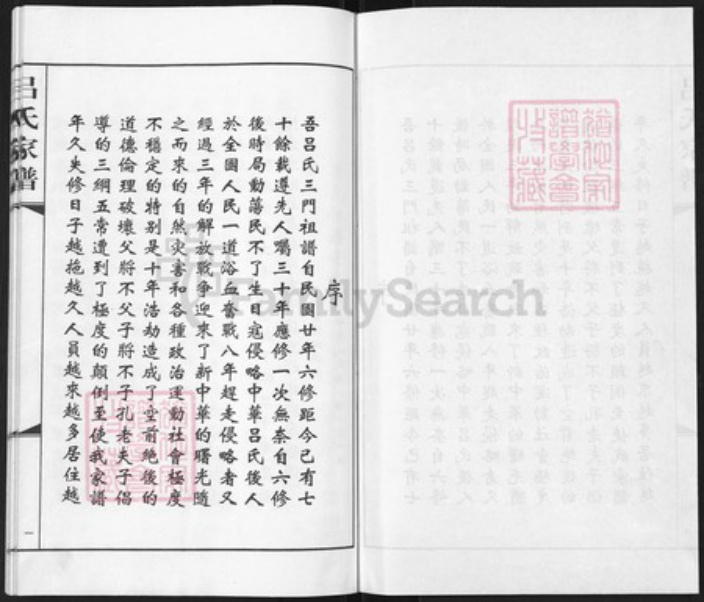 序
吾呂氏三門祖譜自民國廿年六修距今已有七
十餘載遵先人囑三十年應修一次無奈自六修
後時局動蕩民不了生日寇侵略中華呂氏後人
於全國人民一道浴血奮戰八年趕走侵略者又
經過三年的解放戰争迎來了新中華的曙光隨
之而來的自然災害和各種政治運動社會極度
不穩定的特别是十年浩劫造成了空前絶後的
道德倫理破壞父將不父子將不子孔老夫子倡
導的三綱五常遭到了極度的顛倒至使我家譜
年久失修日子越拖越久人員越來越多居住越
呂氏家譜
一
FamilySearch
譜學會
收藏